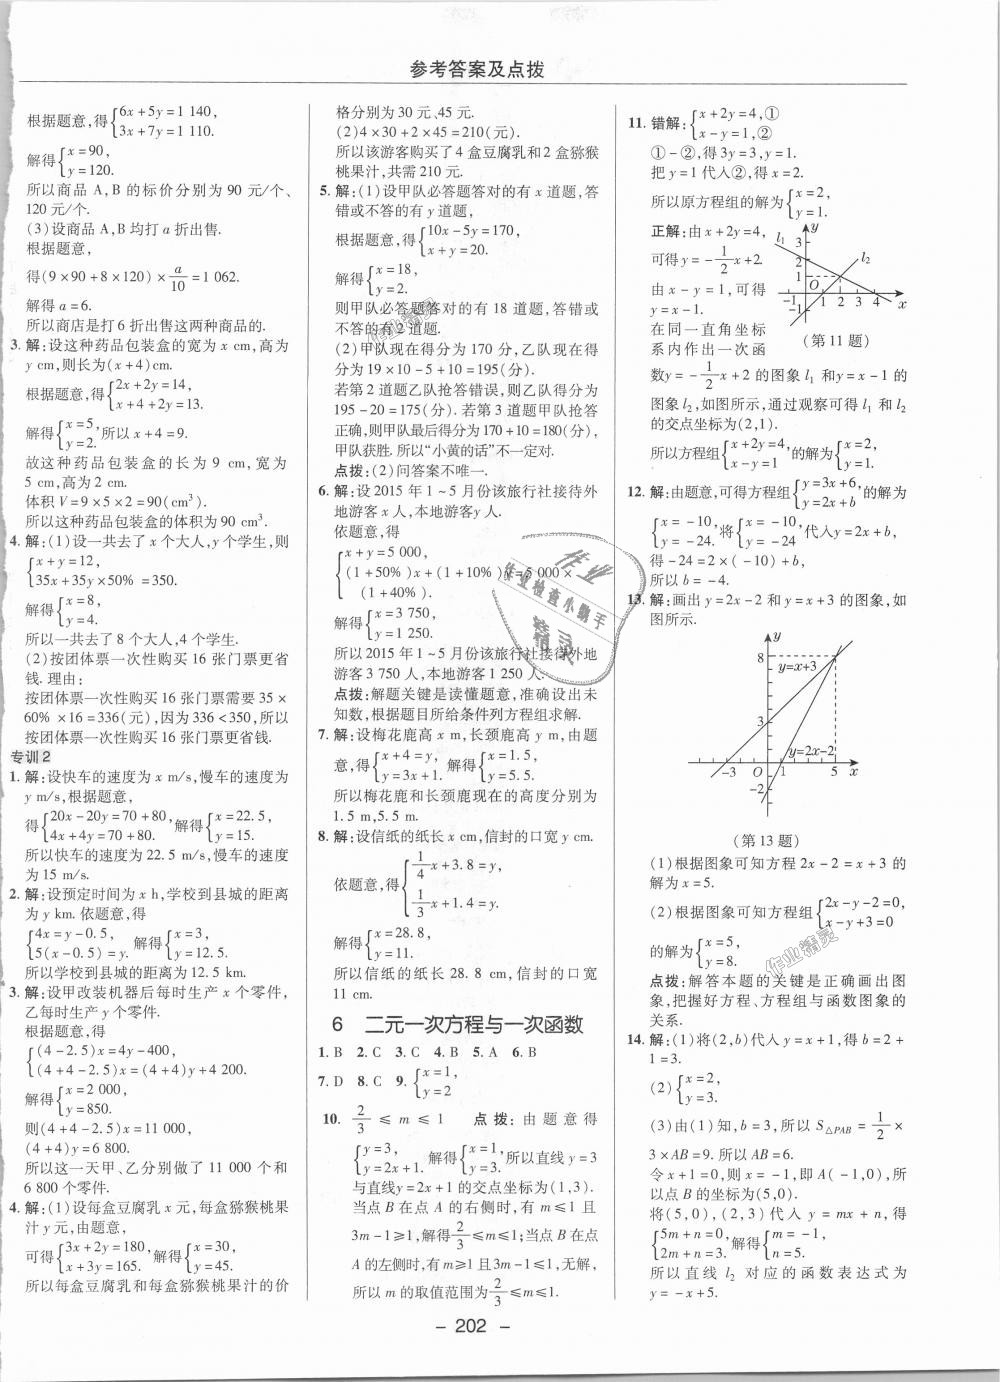 参考答案及点拨
根据题意,得{6x+5y=1 140,
3x+7y=1 110.
解得{x=90,
y=120.
所以商品 A,B 的标价分别为 90 元/个、
120 元/个.
(3)设商品 A,B 均打 a 折出售.
根据题意,
得(9×90+8×120)×a/10=1 062.
解得 a=6.
所以商店是打 6 折出售这两种商品的.
3. 解:设这种药品包装盒的宽为 x cm,高为
y cm,则长为(x+4)cm.
根据题意,得{2x+2y=14,
x+4+2y=13.
解得{x=5,
y=2.所以 x+4=9.
故这种药品包装盒的长为 9 cm,宽为
5 cm,高为 2 cm.
体积 V=9×5×2=90(cm³).
所以这种药品包装盒的体积为 90 cm³.
4. 解:(1)设一共去了 x 个大人,y 个学生,则
{x+y=12,
35x+35y×50%=350.
解得{x=8,
y=4.
所以一共去了 8 个大人,4 个学生.
(2)按团体票一次性购买 16 张门票更省
钱. 理由:
按团体票一次性购买 16 张门票需要 35×
60%×16=336(元),因为 336<350,所以
按团体票一次性购买 16 张门票更省钱.
专训2
1. 解:设快车的速度为 x m/s,慢车的速度为
y m/s,根据题意,
得{20x-20y=70+80,
4x+4y=70+80.解得{x=22.5,
y=15.
所以快车的速度为 22.5 m/s,慢车的速度
为 15 m/s.
2. 解:设预定时间为 x h,学校到县城的距离
为 y km. 依题意,得
{4x=y-0.5,
5(x-0.5)=y.解得{x=3,
y=12.5.
所以学校到县城的距离为 12.5 km.
3. 解:设甲改装机器后每时生产 x 个零件,
乙每时生产 y 个零件.
根据题意,得
{(4-2.5)x=4y-400,
(4+4-2.5)x=(4+4)y+4 200.
解得{x=2 000,
y=850.
则(4+4-2.5)x=11 000,
(4+4)y=6 800.
所以这一天甲、乙分别做了 11 000 个和
6 800 个零件.
4. 解:(1)设每盒豆腐乳 x 元,每盒猕猴桃果
汁 y 元,由题意,
可得{3x+2y=180,
x+3y=165.解得{x=30,
y=45.
所以每盒豆腐乳和每盒猕猴桃果汁的价
格分别为 30 元、45 元.
(2)4×30+2×45=210(元).
所以该游客购买了 4 盒豆腐乳和 2 盒猕猴
桃果汁,共需 210 元.
5. 解:(1)设甲队必答题答对的有 x 道题,答
错或不答的有 y 道题,
根据题意,得{10x-5y=170,
x+y=20.
解得{x=18,
y=2.
则甲队必答题答对的有 18 道题,答错或
不答的有 2 道题.
(2)甲队现在得分为 170 分,乙队现在得
分为 19×10-5+10=195(分).
若第 2 道题乙队抢答错误,则乙队得分为
195-20=175(分).若第 3 道题甲队抢答
正确,则甲队最后得分为 170+10=180(分),
甲队获胜. 所以“小黄的话”不一定对.
点拨:(2)问答案不唯一.
6. 解:设 2015 年 1~5 月份该旅行社接待外
地游客 x 人,本地游客 y 人.
依题意,得
{x+y=5 000,
(1+50%)x+(1+10%)y=5 000×
(1+40%).
解得{x=3 750,
y=1 250.
所以 2015 年 1~5 月份该旅行社接待外地
游客 3 750 人,本地游客 1 250 人.
点拨:解题关键是读懂题意,准确设出未
知数,根据题目所给条件列方程组求解.
7. 解:设梅花鹿高 x m,长颈鹿高 y m,由题
意,得{x+4=y,
y=3x+1.解得{x=1.5,
y=5.5.
所以梅花鹿和长颈鹿现在的高度分别为
1.5 m,5.5 m.
8. 解:设信纸的纸长 x cm,信封的口宽 y cm.
依题意,得{1/4x+3.8=y,
1/3x+1.4=y.
解得{x=28.8,
y=11.
所以信纸的纸长 28.8 cm,信封的口宽
11 cm.
6 二元一次方程与一次函数
1. B 2. C 3. C 4. B 5. A 6. B
7. D 8. C 9. {x=1,
y=2
10. 2/3≤m≤1 点拨:由题意得
{y=3,
y=2x+1.解得{x=1,
y=3.所以直线 y=3
与直线y=2x+1 的交点坐标为(1,3).
当点 B 在点 A 的右侧时,有 m≤1 且
3m-1≥1,解得2/3≤m≤1;当点 B 在点
A 的左侧时,有m≥1 且3m-1≤1,无解,
所以 m 的取值范围为2/3≤m≤1.
11. 错解:{x+2y=4,①
x-y=1,②
①-②,得3y=3,y=1.
把 y=1 代入②,得 x=2.
所以原方程组的解为{x=2,
y=1.
正解:由 x+2y=4,
可得 y=-1/2x+2.
由 x-y=1,可得
y=x-1.
在同一直角坐标
系内作出一次函
数y=-1/2x+2 的图象 l₁ 和y=x-1 的
图象 l₂,如图所示,通过观察可得 l₁ 和 l₂
的交点坐标为(2,1).
所以方程组{x+2y=4,
x-y=1的解为{x=2,
y=1.
l₁ 3 y
2
1 l₂
O
-1 1 2 3 4 x
-1
(第 11 题)
12. 解:由题意,可得方程组{y=3x+6,
y=2x+b的解为
{x=-10,
y=-24.将{x=-10,
y=-24代入y=2x+b,
得-24=2×(-10)+b,
所以 b=-4.
13. 解:画出 y=2x-2 和 y=x+3 的图象,如
图所示.
y
8 y=x+3
3
y=2x-2
-3 O 1 5 x
-2
(第 13 题)
(1)根据图象可知方程 2x-2=x+3 的
解为 x=5.
(2)根据图象可知方程组{2x-y-2=0,
x-y+3=0
的解为{x=5,
y=8.
点拨:解答本题的关键是正确画出图
象,把握好方程、方程组与函数图象的
关系.
14. 解:(1)将(2,b)代入 y=x+1,得 b=2+
1=3.
(2){x=2,
y=3.
(3)由(1)知,b=3,所以 S△PAB=1/2×
3×AB=9. 所以 AB=6.
令 x+1=0,则 x=-1,即A(-1,0),所
以点 B 的坐标为(5,0).
将(5,0),(2,3)代入 y=mx+n,得
{5m+n=0,
2m+n=3.解得{m=-1,
n=5.
所以直线 l₂ 对应的函数表达式为
y=-x+5.
作业精灵
作业
作业检查小助手
精灵
作业精灵
- 202 -